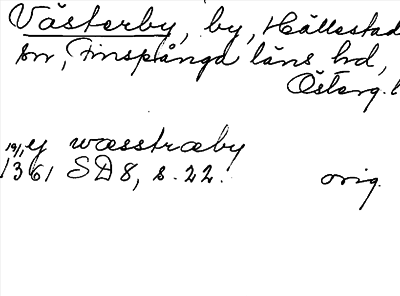 Västerby, by, Hällestad
sn, Finspånga läns hd,
Österg.l
19/1 y wæsstræby
1361 SD 8, s. 22. orig.